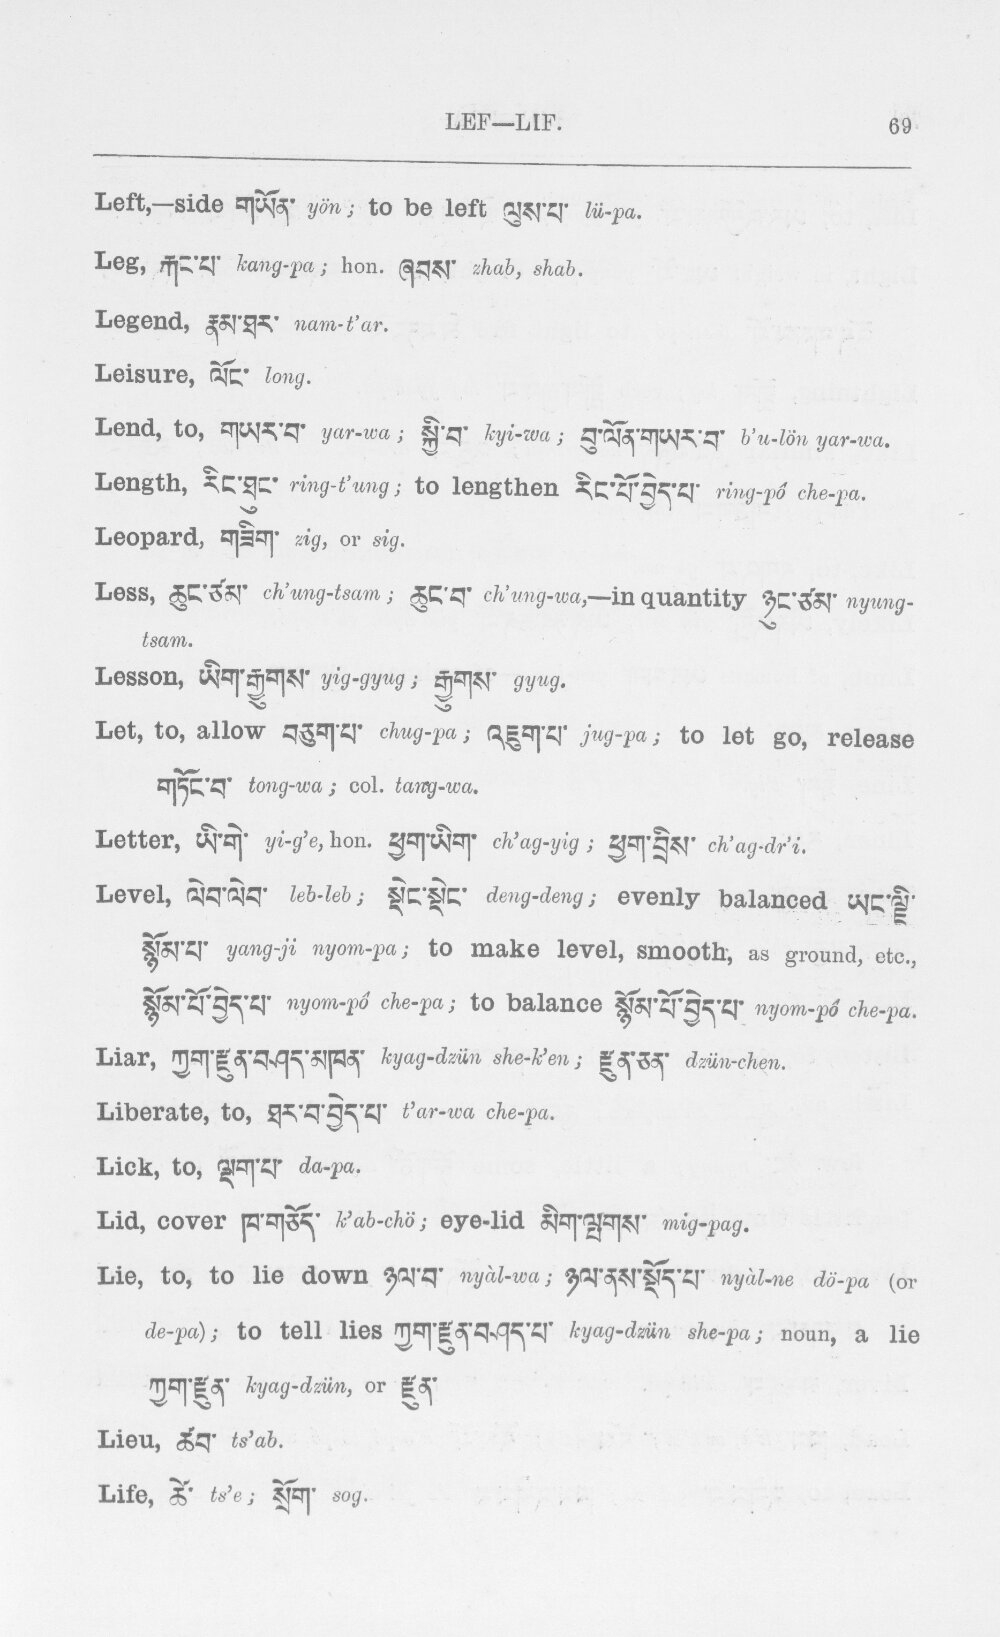 LEF—LIF.
69
Left,—side གཡོན་ yön; to be left ལུས་པ་ lü-pa.
Leg, རྐང་པ་ kang-pa; hon. ཞབས་ zhab, shab.
Legend, རྣམ་ཐར་ nam-t'ar.
Leisure, ལོང་ long.
Lend, to, གཡར་བ་ yar-wa; སྐྱི་བ་ kyi-wa; བུ་ལོན་གཡར་བ་ b'u-lön yar-wa.
Length, རིང་ཐུང་ ring-t'ung; to lengthen རིང་པོ་བྱེད་པ་ ring-pó che-pa.
Leopard, གཟིག་ zig, or sig.
Less, ཆུང་ཙམ་ ch'ung-tsam; ཆུང་བ་ ch'ung-wa,—in quantity ཉུང་ཙམ་ nyung-
tsam.
Lesson, ཡིག་རྒྱུགས་ yig-gyug; རྒྱུགས་ gyug.
Let, to, allow བཅུག་པ་ chug-pa; འཇུག་པ་ jug-pa; to let go, release
གཏོང་བ་ tong-wa; col. tang-wa.
Letter, ཡི་གེ་ yi-g'e, hon. ཕྱག་ཡིག་ ch'ag-yig; ཕྱག་བྲིས་ ch'ag-dr'i.
Level, ལེབ་ལེབ་ leb-leb; སྡེང་སྡེང་ deng-deng; evenly balanced ཡང་ལྗི་
སྙོམ་པ་ yang-ji nyom-pa; to make level, smooth, as ground, etc.,
སྙོམ་པོ་བྱེད་པ་ nyom-pó che-pa; to balance སྙོམ་པོ་བྱེད་པ་ nyom-pó che-pa.
Liar, ཀྱག་རྫུན་བཤད་མཁན་ kyag-dzün she-k'en; རྫུན་ཅན་ dzün-chen.
Liberate, to, ཐར་བ་བྱེད་པ་ t'ar-wa che-pa.
Lick, to, ལྡག་པ་ da-pa.
Lid, cover ཁ་གཅོད་ k'ab-chö; eye-lid མིག་ལྤགས་ mig-pag.
Lie, to, to lie down ཉལ་བ་ nyàl-wa; ཉལ་ནས་སྡོད་པ་ nyàl-ne dö-pa (or
de-pa); to tell lies ཀྱག་རྫུན་བཤད་པ་ kyag-dzün she-pa; noun, a lie
ཀྱག་རྫུན་ kyag-dzün, or རྫུན་
Lieu, ཚབ་ ts'ab.
Life, ཚེ་ ts'e; སྲོག་ sog.